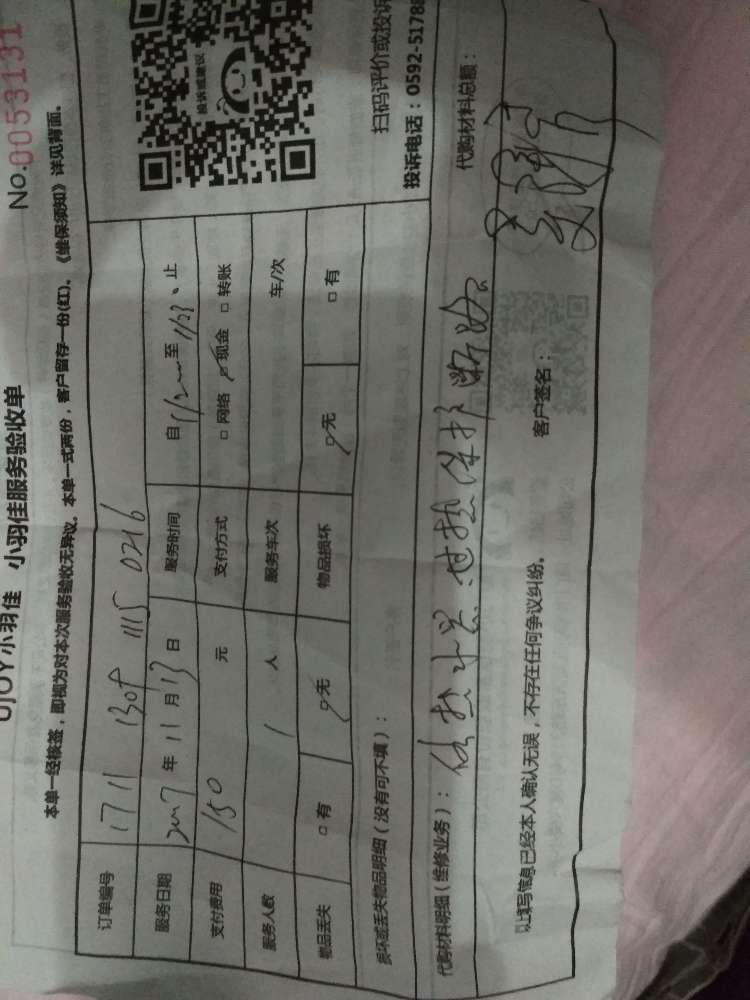 UJOY小羽佳 小羽佳服务验收单 No.0053131
本单一经核签，即视为对本次服务验收无异议。本单一式两份，客户留存一份(红)。《维保须知》详见背面。
订单编号 1711 1309 1115 0216
服务日期 2017 年 11 月 13 日 服务时间 自 至 止
支付费用 150 元 支付方式 □网络 ☑现金 □转账
服务人数 1 人 服务车次 车/次
物品丢失 □有 ☑无 物品损坏 ☑无 □有
投诉或建议
扫码评价或投诉
投诉电话：0592-5178
损坏或丢失物品明细（没有可不填）：
代购材料明细（维修业务）： 过热保护 代购材料总额：
以上填写信息已经本人确认无误，不存在任何争议纠纷。 客户签名：